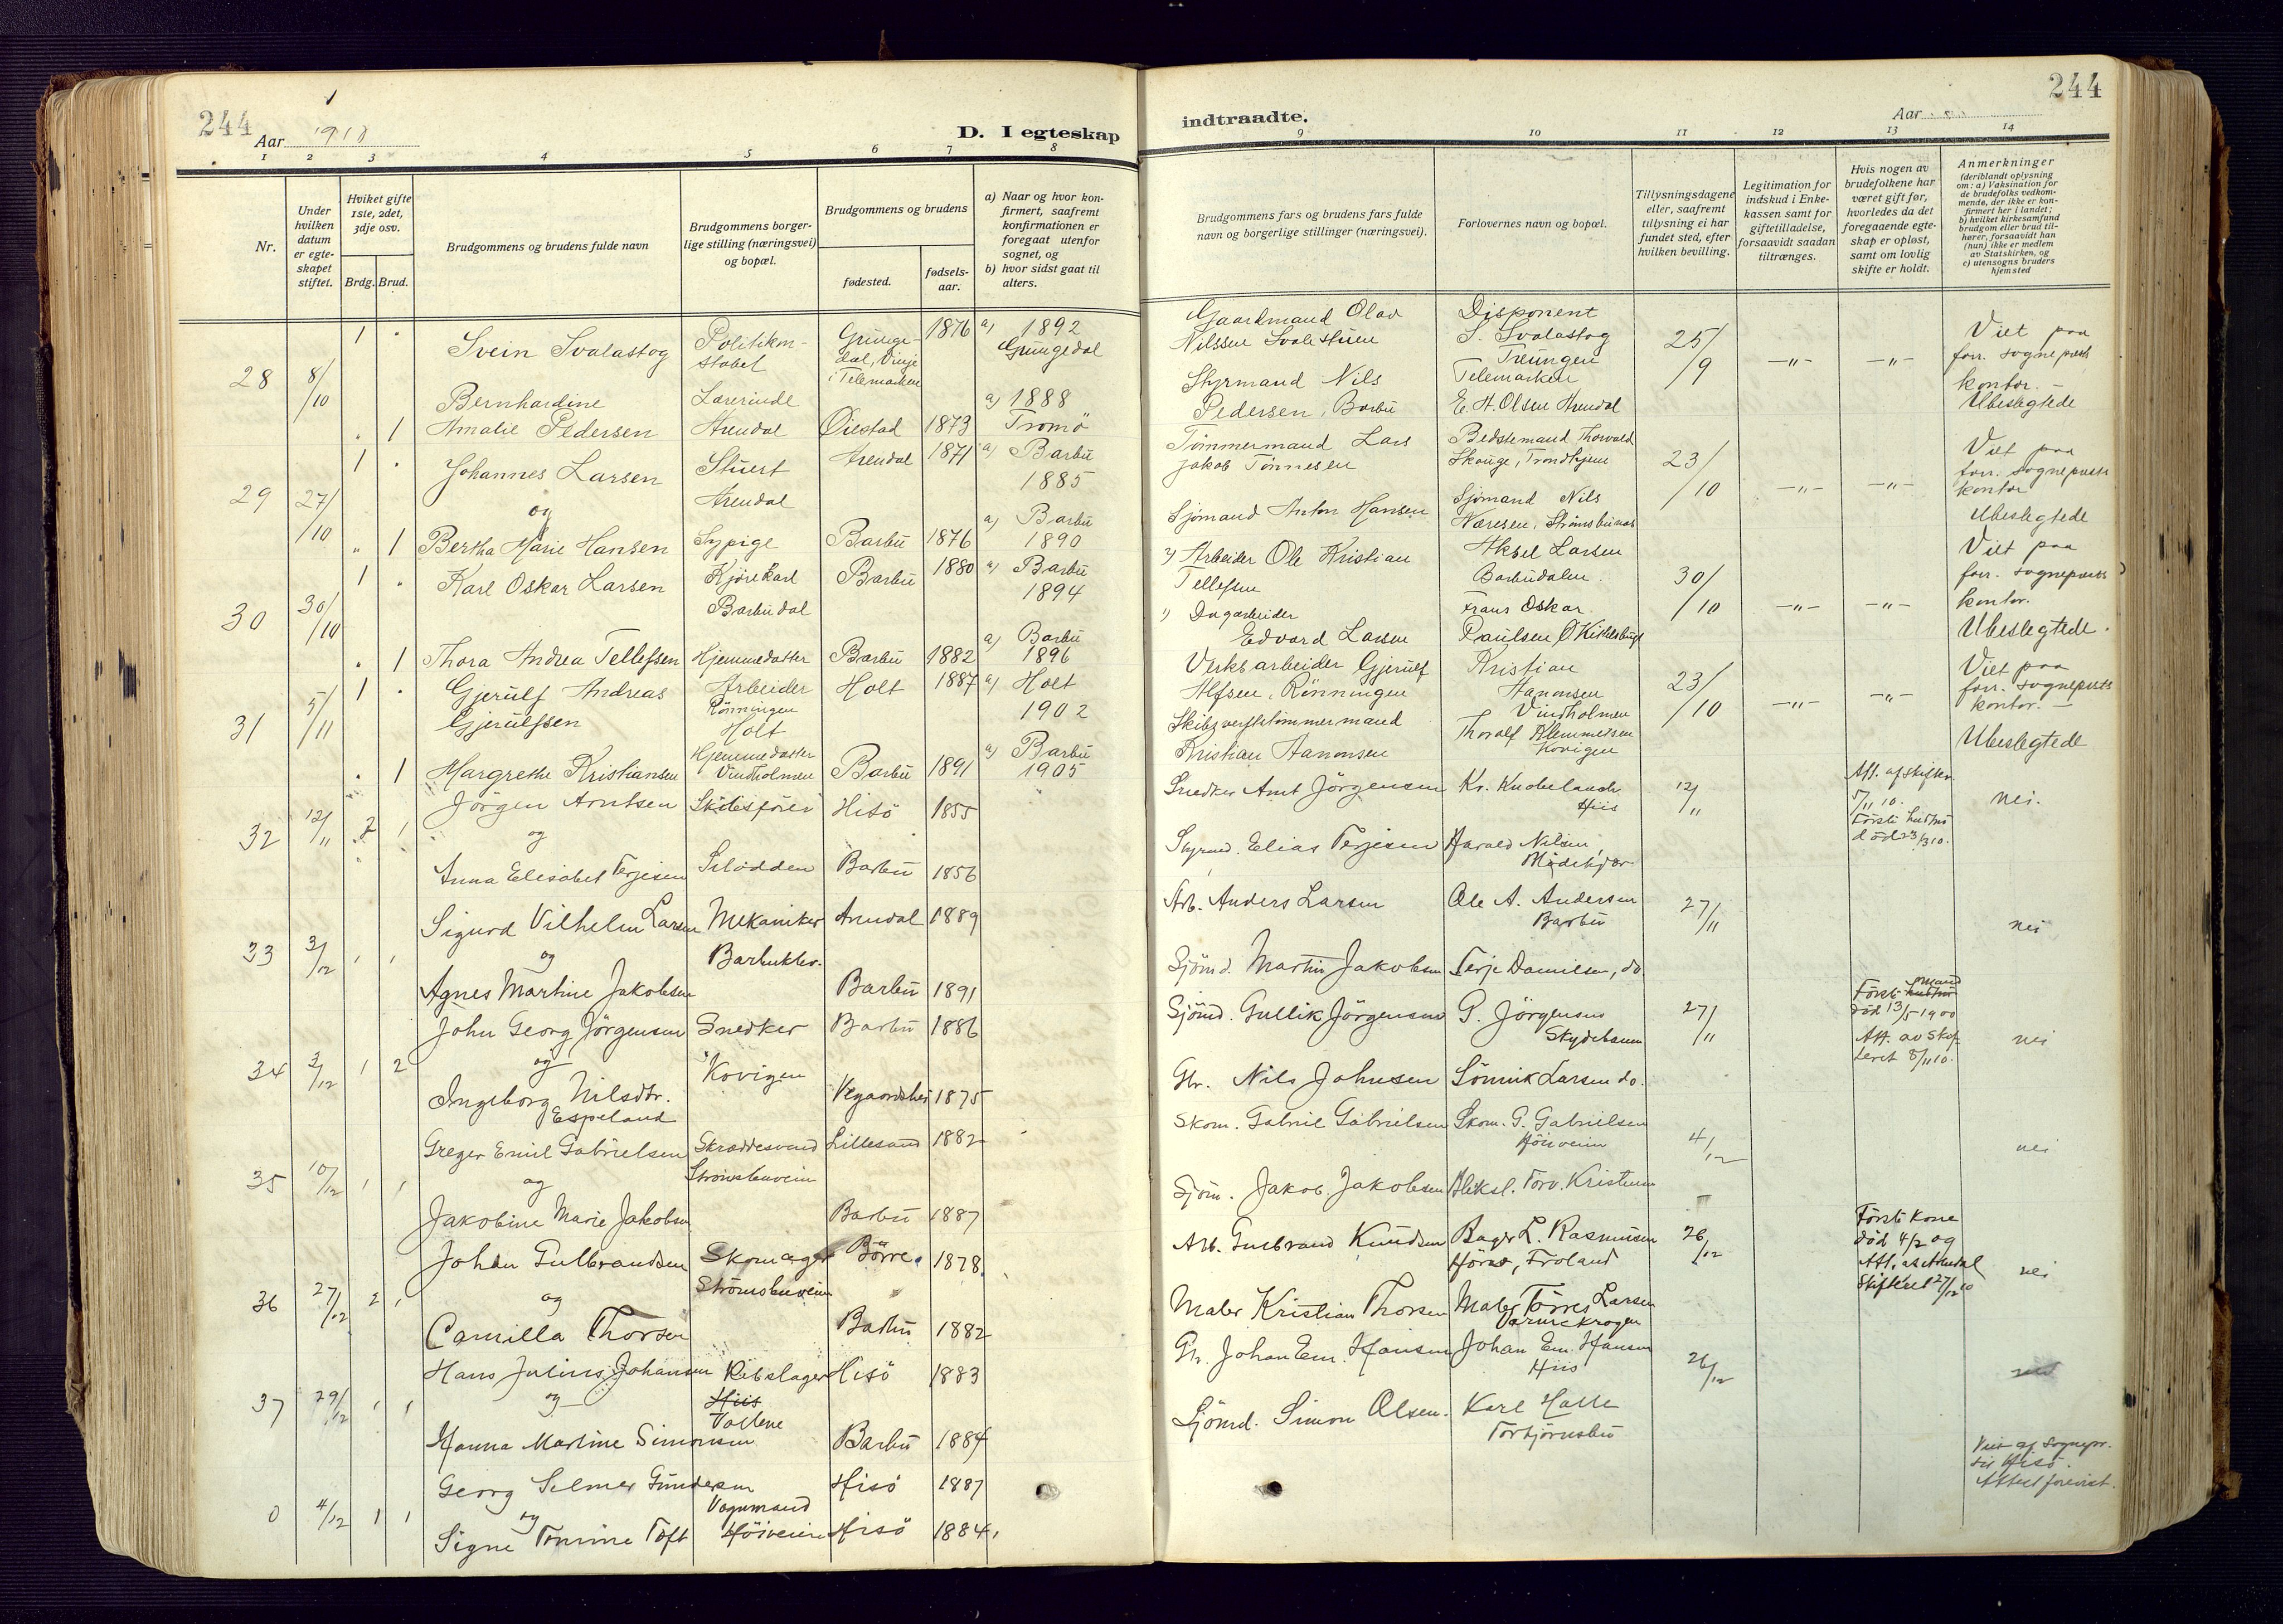 244
Aar 1910
D. I egteskap
1 2 3 4 5 6 7 8
Nr.
Under hvilken datum er egteskapet stiftet.
Hviket gifte 1ste, 2det, 3dje osv.
Brdg. Brud.
Brudgommens og brudens fulde navn
Brudgommens borgerlige stilling (næringsvei) og bopæl.
Brudgommens og brudens
fødested.
fødselsaar.
a) Naar og hvor konfirmert, saafremt konfirmationen er foregaat utenfor sognet, og
b) hvor sidst gaat til alters.
28 8/10 1 Svein Svalastog Politikonstabel Grungedal, Vinje i Telemarken 1876 a) 1892 Grungedal
1 Bernhardine Amalie Pedersen Lærerinde Arendal Øiestad 1873 a) 1888 Tromö
29 27/10 1 Johannes Larsen Stuert Arendal Arendal 1871 a) Barbu 1885
og
1 Bertha Marie Hansen Sypige Barbu 1876 a) Barbu 1890
30 30/10 1 Karl Oskar Larsen Kjörekarl Barbudal Barbu 1880 a) Barbu 1894
1 Thora Andrea Tellefsen Hjemmedatter Barbu 1882 a) Barbu 1896
31 5/11 1 Gjerulf Andreas Gjerulfsen Arbeider Rönningen Holt Holt 1887 a) Holt 1902
1 Margrethe Kristiansen Hjemmedatter Vindholmen Barbu 1891 a) Barbu 1905
32 12/11 2 1 Jörgen Arntsen Skibsförer Hisö 1855
og
Anna Elisabet Terjesen Slodden Barbu 1856
33 3/12 1 1 Sigurd Vilhelm Larsen Mekaniker Arendal 1889
og Barbukler.
Agnes Martine Jakobsen Barbu 1891
34 3/12 1 2 John Georg Jörgensen Snedker Barbu 1886
og Kovigen
Ingeborg Nilsdtr. Espeland Vegaardshei 1875
35 10/12 1 1 Greger Emil Gabrielsen Skræddersvend Lillesand 1882
og Strömsbuveien
Jakobine Marie Jakobsen Barbu 1887
36 27/12 2 1 Johan Gulbrandsen Skomager Börre 1878
og Strömsbuveien
Camilla Thorsen Barbu 1882
37 29/12 1 1 Hans Julius Johansen Rebslager Hisö 1883
og Hiis Vollene
Hanna Martine Simonsen Barbu 1884
0 4/12 1 1 Georg Selmer Gundersen Hisö 1887
og Vognmand
Signe Tomine Toft Höiveien Hisö 1884
244
indtraadte.
Aar
9 10 11 12 13 14
Brudgommens fars og brudens fars fulde navn og borgerlige stillinger (næringsvei).
Forlovernes navn og bopæl.
Tillysningsdagene eller, saafremt tillysning ei har fundet sted, efter hvilken bevilling.
Legitimation for indskud i Enkekassen samt for giftetilladelse, forsaavidt saadan tiltrænges.
Hvis nogen av brudefolkene har været gift før, hvorledes da det foregaaende egteskap er opløst, samt om lovlig skifte er holdt.
Anmerkninger (deriblandt oplysning om: a) Vaksination for de brudefolks vedkommende, der ikke er konfirmert her i landet; b) hvilket kirkesamfund brudgom eller brud tilhører, forsaavidt han (hun) ikke er medlem av Statskirken, og c) utensogns bruders hjemsted
Gaardmand Olav Nilssen Svalestuen Disponent S. Svalastog Treungen Telemarken 25/9 -"- -"- Viet paa forr. sogneprests kontor. Ubeslegtede
Styrmand Nils Pedersen, Barbu E. H. Olsen Arendal
Tömmermand Lars Jakob Tönnesen Bedstemand Thorvald Skauge, Trondhjem 23/10 -"- -"- Viet paa forr. sogneprests kontor Ubeslegtede
Sjömand Anton Hansen Sjömand Nils Næresen, Strömsbunes
2) Arbeider Ole Kristian Tellefsen Aksel Larsen Barbudalen. 30/10 -"- -"- Viet paa forr. sogneprests kontor. Ubeslegtede.
1) Dagarbeider Edvard Larsen Frans Oskar Paulsen
Verksarbeider Gjerulf Alfsen, Rönningen Kristian Aanonsen Vindholmen 23/10 -"- -"- Viet paa forr. sogneprests kontor. Ubeslegtede
Skibsverftstömmermand Kristian Aanonsen Thoralf Klemmetsen Kovigen
Snedker Arnt Jörgensen Kr. Knobelauch Hiis 12/11 Att. af skifter. 5/11 10. Förste hustru död 23/3 10. nei.
Styrmd. Elias Terjesen Harald Nilsen,
Arb. Anders Larsen Ole A. Andersen Barbu 27/11 nei
Sjömd. Martin Jakobsen Terje Danielsen, do
Sjömd. Gullik Jörgensen G. Jörgensen Skydebanen 27/11 Förste hustru mand död 13/5 1900 Att. av Skifteret 8/11 10. nei
Gbr. Nils Johnsen Sönnik Larsen do.
Skom. Gabriel Gabrielsen Skom. G. Gabrielsen Höiveien 4/12 nei
Sjöm. Jakob Jakobsen Aleksl. Torv. Kristensen
Arb. Gulbrand Knudsen Bager L. Rasmusen Hörne, Froland 26/12 Förste kone död 4/2 09 Att. at Arendal Skifteret 27/12 10 nei
Maler Kristian Thorsen Maler Törres Larsen Varmekrogen
Gbr. Johan Em. Hansen Johan Em. Hansen Hiis 26/12 nei
Sjömd. Simon Olsen. Karl Halle Torbjörnsbu
Viet af Sognepr. til Hisö. Attest forevist.